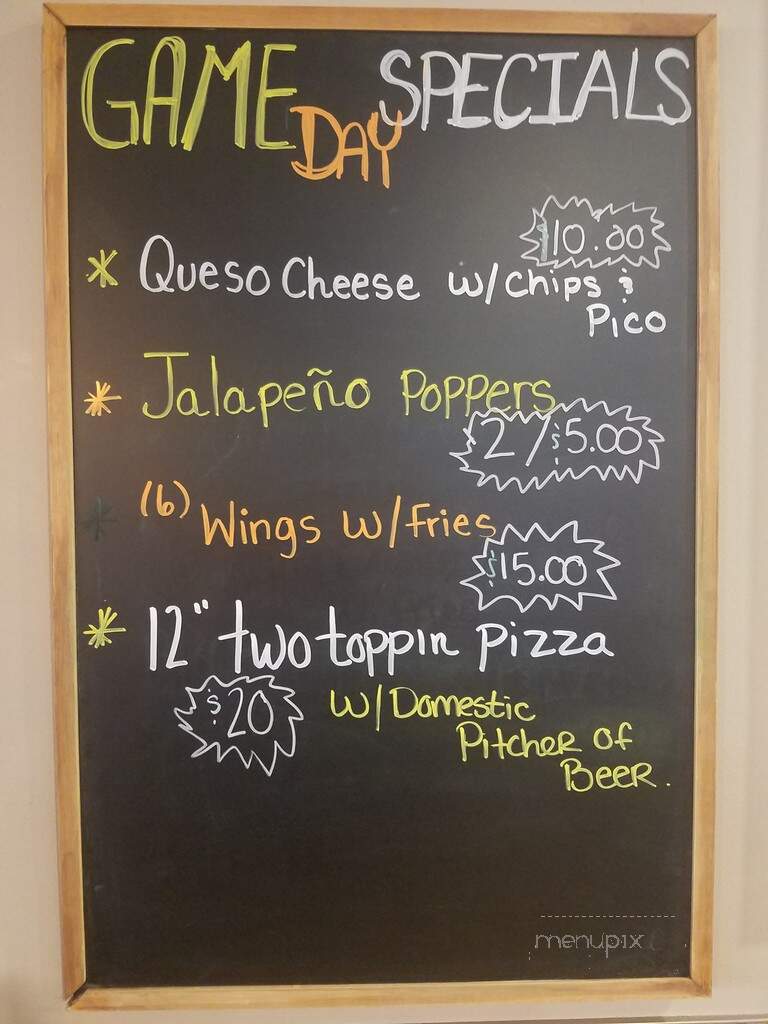 GAME DAY SPECIALS
$10.00
* Queso Cheese w/chips &
Pico
* Jalapeño Poppers
2/$5.00
* (6) Wings w/fries
$15.00
* 12" two toppin pizza
$20 w/Domestic
Pitcher of
Beer.
menupix